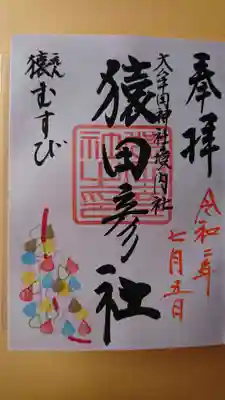 奉拝
令和二年
七月五日
大牟田神社境内社
猿田彦社
えん
猿むすび